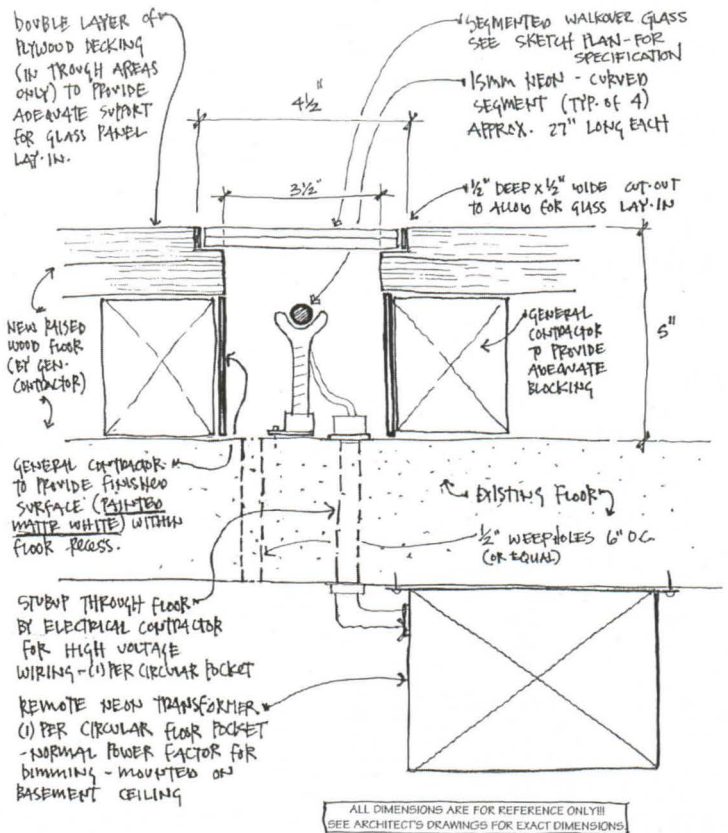 DOUBLE LAYER OF
PLYWOOD DECKING
(IN TROUGH AREAS
ONLY) TO PROVIDE
ADEQUATE SUPPORT
FOR GLASS PANEL
LAY-IN.
SEGMENTED WALKOVER GLASS
SEE SKETCH PLAN-FOR
SPECIFICATION
15MM NEON - CURVED
SEGMENT (TYP. OF 4)
APPROX. 27" LONG EACH
4½"
3½"
½" DEEP X ½" WIDE CUT-OUT
TO ALLOW FOR GLASS LAY-IN
NEW RAISED
WOOD FLOOR
(BY GEN.
CONTRACTOR)
GENERAL
CONTRACTOR
TO PROVIDE
ADEQUATE
BLOCKING
5"
GENERAL CONTRACTOR
TO PROVIDE FINISHED
SURFACE (PAINTED
MATTE WHITE) WITHIN
FLOOR RECESS.
EXISTING FLOOR
½" WEEPHOLES 6" O.C.
(OR EQUAL)
STUBUP THROUGH FLOOR
BY ELECTRICAL CONTRACTOR
FOR HIGH VOLTAGE
WIRING-(1) PER CIRCULAR POCKET
REMOTE NEON TRANSFORMER
(1) PER CIRCULAR FLOOR POCKET
-NORMAL POWER FACTOR FOR
DIMMING - MOUNTED ON
BASEMENT CEILING
ALL DIMENSIONS ARE FOR REFERENCE ONLY!!!
SEE ARCHITECT'S DRAWINGS FOR EXACT DIMENSIONS